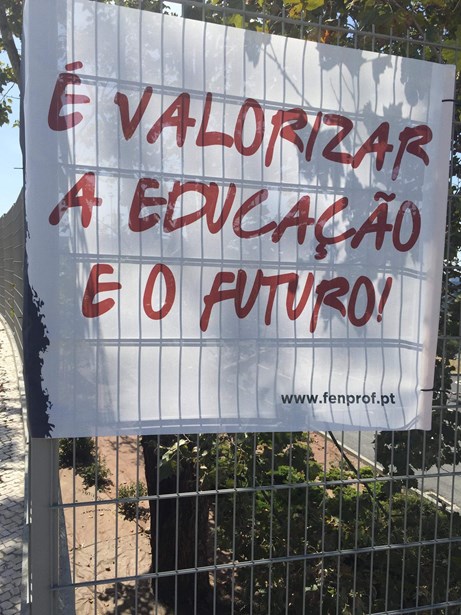 É VALORIZAR
A EDUCAÇÃO
E O FUTURO!
www.fenprof.pt